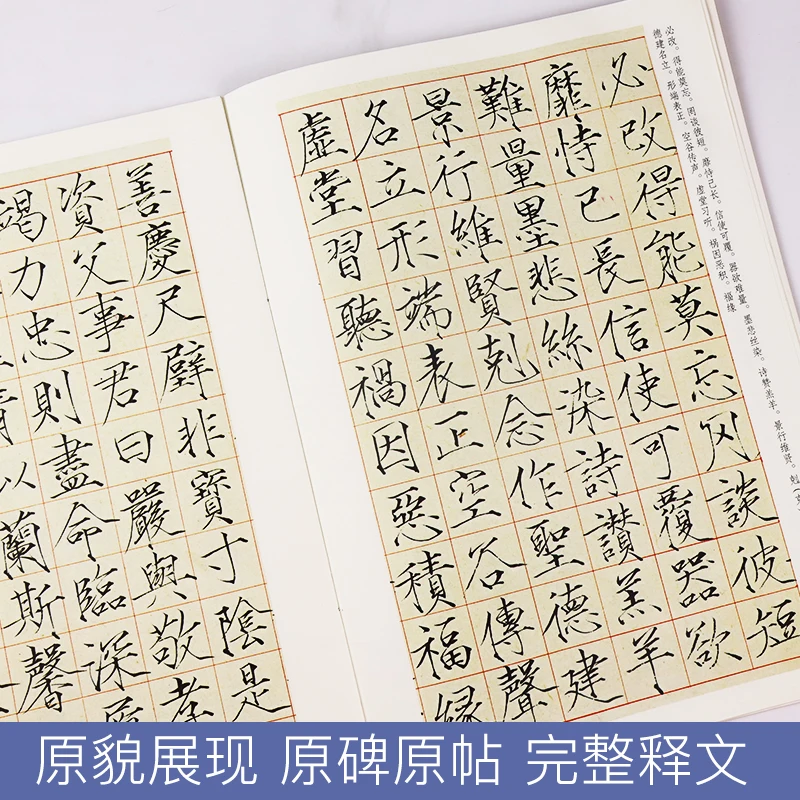 必改。得能莫忘。罔谈彼短。靡恃己长。信使可覆。器欲难量。墨悲丝染。诗赞羔羊。景行维贤。剋
德建名立。形端表正。空谷传声。虚堂习听。祸因恶积。福缘
必改得能莫忘罔談彼短
靡恃己長信使可覆器欲
難量墨悲絲染詩讚羔羊
景行維賢剋念作聖德建
名立形端表正空谷傳聲
虛堂習聽禍因惡積福緣
善慶尺璧非寶寸陰是
資父事君曰嚴與敬孝
竭力忠則盡命臨深
蘭斯馨
原貌展现 原碑原帖 完整释文